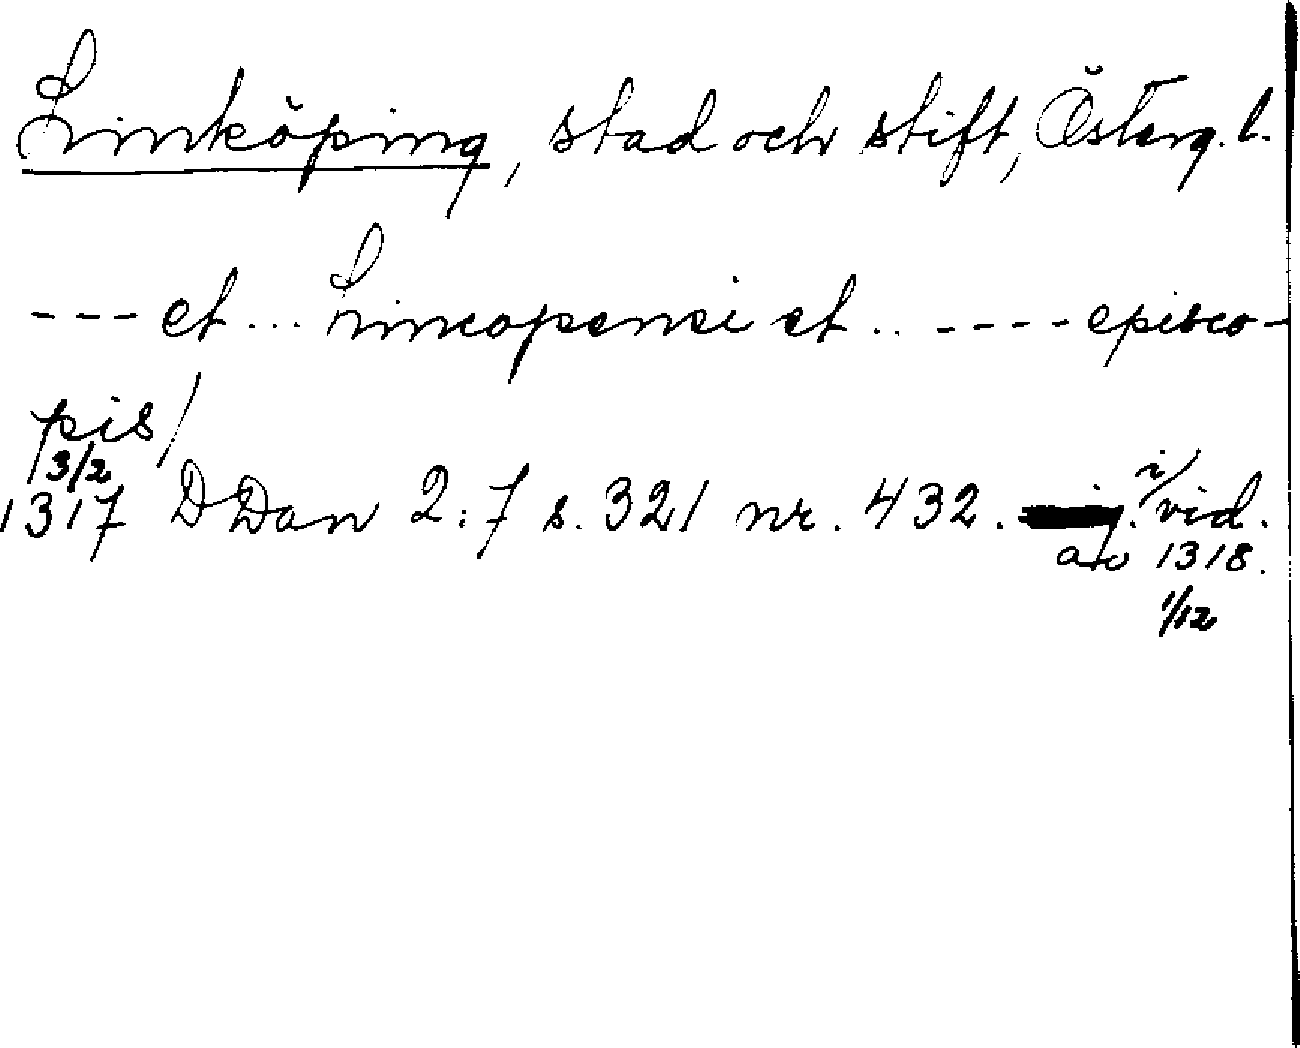 Linköping, stad och stift, Österg. l.
--- et ... Lincopensi et .. ---- episco-
pis/
3/2
1317 DDan 2:7 s. 321 nr. 432. i/vid.
av 1318.
1/12